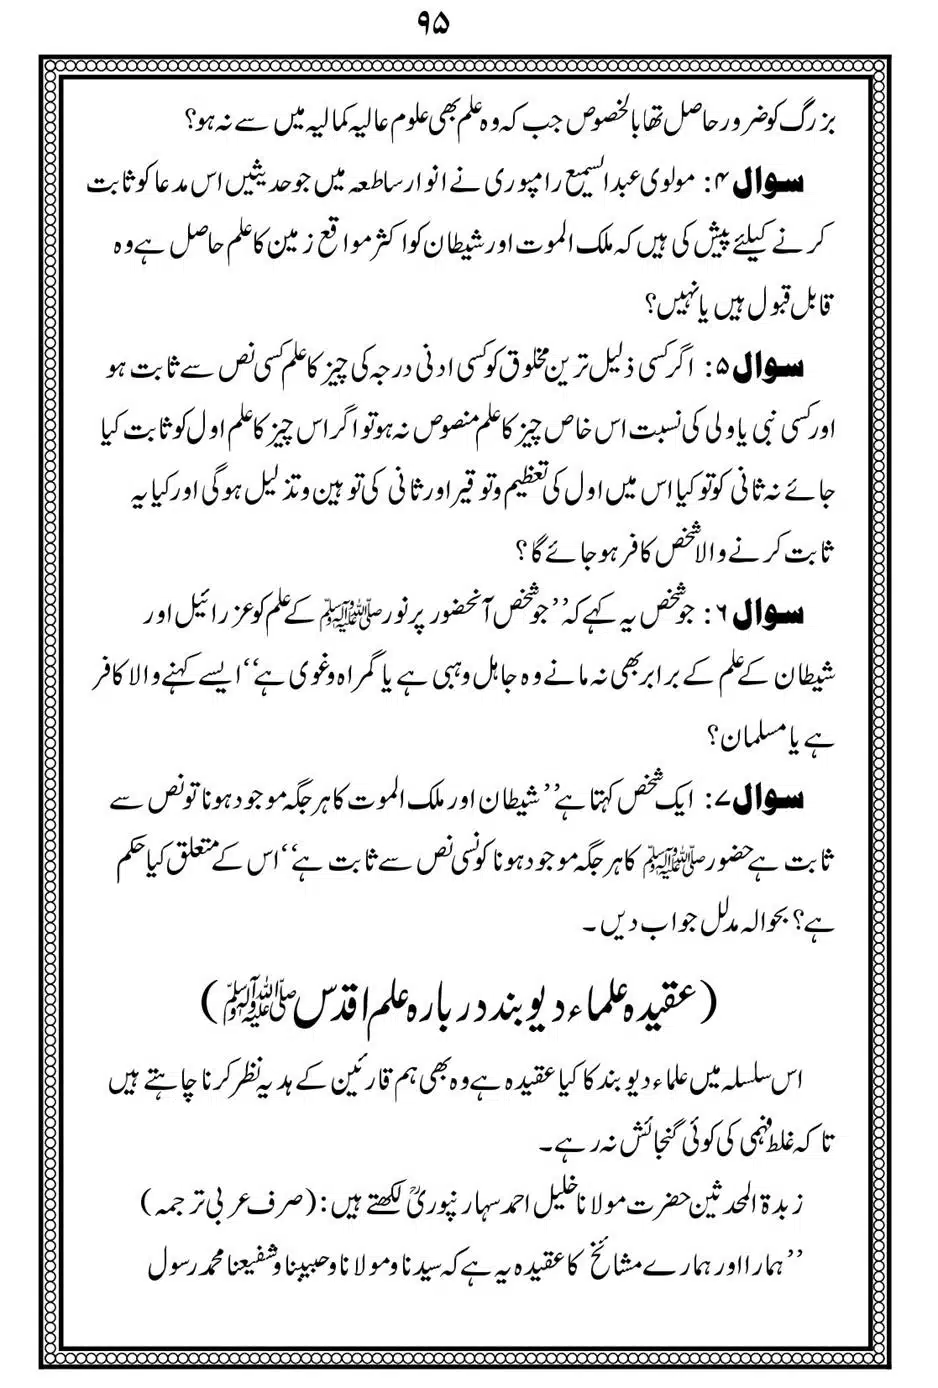 ۹۵
بزرگ کو ضرور حاصل تھا بالخصوص جب کہ وہ علم بھی علوم عالیہ کمالیہ میں سے نہ ہو؟
سوال ۴: مولوی عبدالسمیع رامپوری نے انوار ساطعہ میں جو حدیثیں اس مدعا کو ثابت
کرنے کیلئے پیش کی ہیں کہ ملک الموت اور شیطان کو اکثر مواقع زمین کا علم حاصل ہے وہ
قابل قبول ہیں یا نہیں؟
سوال ۵: اگر کسی ذلیل ترین مخلوق کو کسی ادنی درجہ کی چیز کا علم کسی نص سے ثابت ہو
اور کسی نبی یا ولی کی نسبت اس خاص چیز کا علم منصوص نہ ہو تو اگر اس چیز کا علم اول کو ثابت کیا
جائے نہ ثانی کو تو کیا اس میں اول کی تعظیم و توقیر اور ثانی کی توہین و تذلیل ہوگی اور کیا یہ
ثابت کرنے والا شخص کافر ہو جائے گا؟
سوال ۶: جو شخص یہ کہے کہ ’’جو شخص آنحضور پرنور ﷺ کے علم کو عزرائیل اور
شیطان کے علم کے برابر بھی نہ مانے وہ جاہل وہبی ہے یا گمراہ و غوی ہے‘‘ ایسے کہنے والا کافر
ہے یا مسلمان؟
سوال ۷: ایک شخص کہتا ہے ’’شیطان اور ملک الموت کا ہر جگہ موجود ہونا تو نص سے
ثابت ہے حضور ﷺ کا ہر جگہ موجود ہونا کونسی نص سے ثابت ہے‘‘ اس کے متعلق کیا حکم
ہے؟ بحوالہ مدلل جواب دیں۔
(عقیدہ علماء دیوبند دربارہ علم اقدس ﷺ)
اس سلسلہ میں علماء دیوبند کا کیا عقیدہ ہے وہ بھی ہم قارئین کے ہدیہ نظر کرنا چاہتے ہیں
تاکہ غلط فہمی کی کوئی گنجائش نہ رہے۔
زبدۃ المحدثین حضرت مولانا خلیل احمد سہارنپوریؒ لکھتے ہیں: (صرف عربی ترجمہ)
’’ہمارا اور ہمارے مشائخ کا عقیدہ یہ ہے کہ سیدنا و مولانا و حبیبنا و شفیعنا محمد رسول